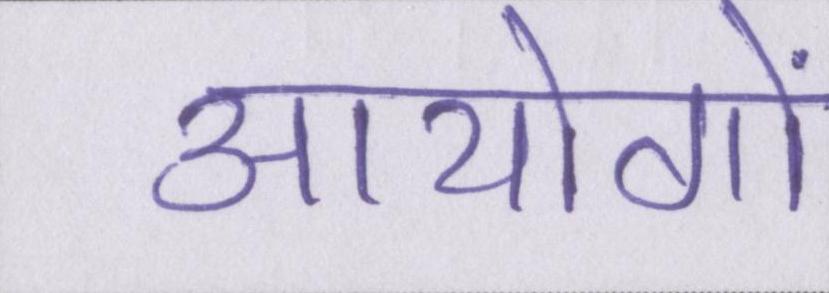 आयोगों